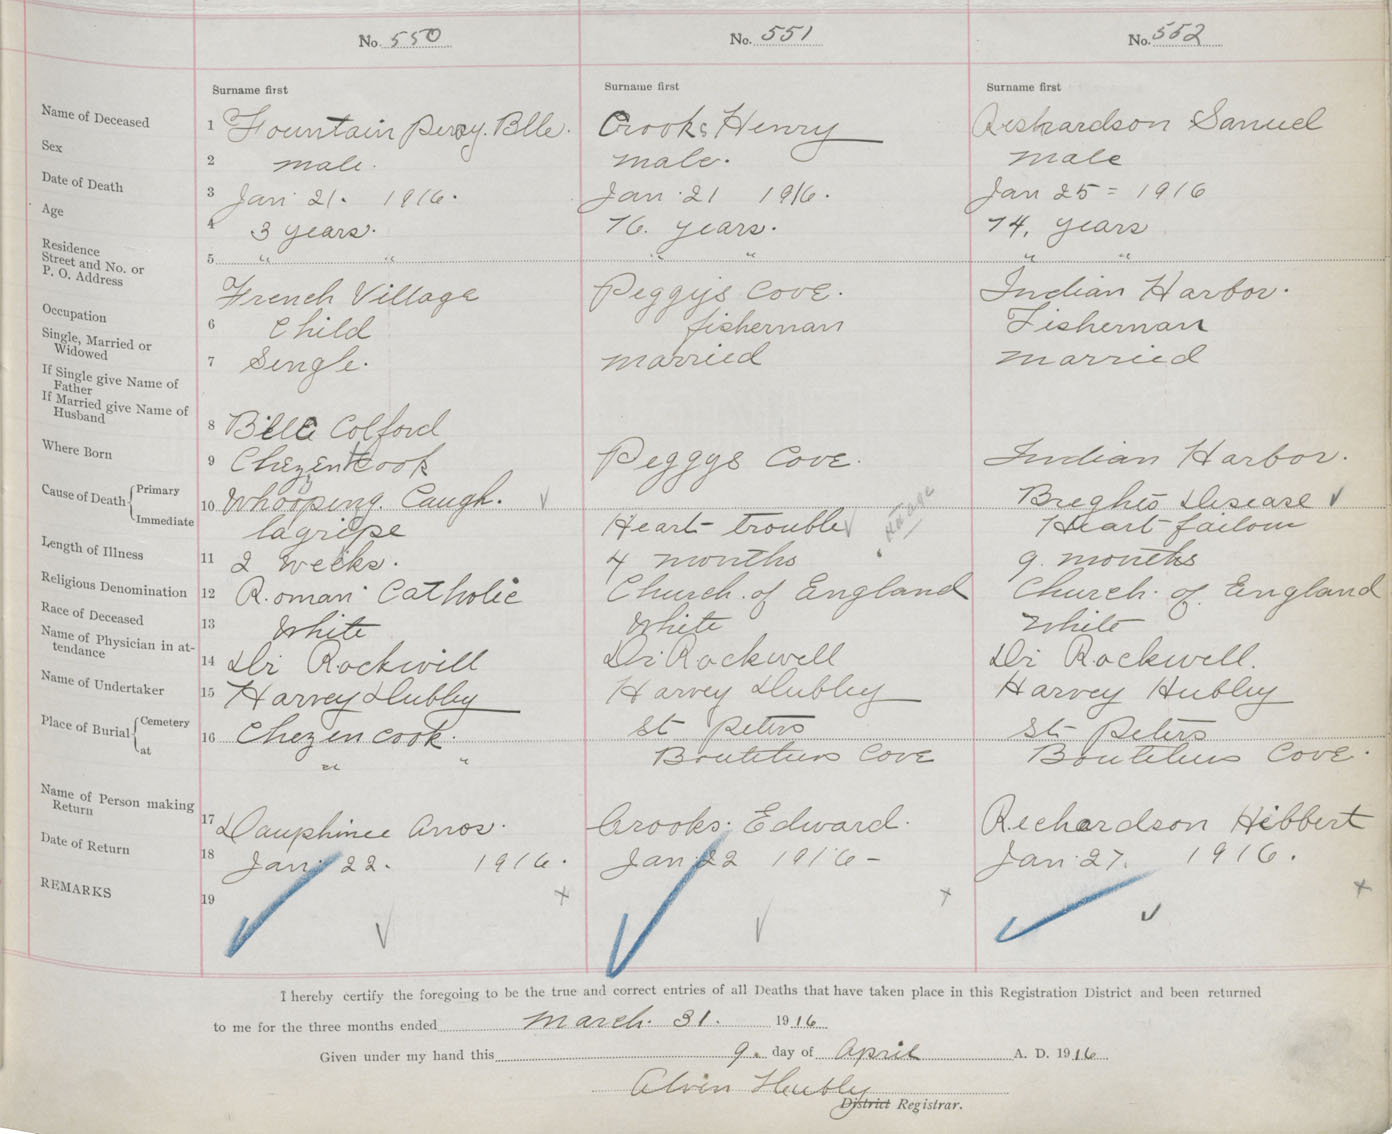 No. 550 No. 551 No. 552
Surname first Surname first Surname first
Name of Deceased 1 Fountain Percy. Blle. Crooks Henry Richardson Samuel
Sex 2 male. male. male
Date of Death 3 Jan 21. 1916. Jan 21 1916. Jan 25 = 1916
Age 4 3 years. 76. years. 74, years
Residence 5 " " " " " "
Street and No. or
P. O. Address French Village Peggys Cove. Indian Harbor.
Occupation 6 Child fisherman Fisherman
Single, Married or
Widowed 7 Single. married married
If Single give Name of
Father
If Married give Name of
Husband 8 Bille Colford
Where Born 9 Chezentcook Peggys Cove. Indian Harbor.
Cause of Death { Primary 10 Whooping. Caugh. ✓ Breghts Disease ✓
Immediate lagripe Heart trouble ✓ Heart failour
Length of Illness 11 2 weeks. 4 months 9. months
Religious Denomination 12 Roman Catholic Church. of England Church. of England
Race of Deceased 13 White White White
Name of Physician in at-
tendance 14 Dr Rockwill Dr Rockwell Dr Rockwell.
Name of Undertaker 15 Harvey Hubley Harvey Hubley Harvey Hubley
Place of Burial { Cemetery 16 Chezencook. St Peters St Peters
at " " Boutiliers Cove Boutiliers Cove.
Name of Person making
Return 17 Dauphinee Amos. Crooks. Edward. Richardson Hibbert
Date of Return 18 Jan. 22. 1916. Jan 22 1916 - Jan. 27. 1916.
REMARKS 19
I hereby certify the foregoing to be the true and correct entries of all Deaths that have taken place in this Registration District and been returned
to me for the three months ended march. 31. 1916
Given under my hand this 9. day of April A. D. 1916
Alvin Hubley
District Registrar.